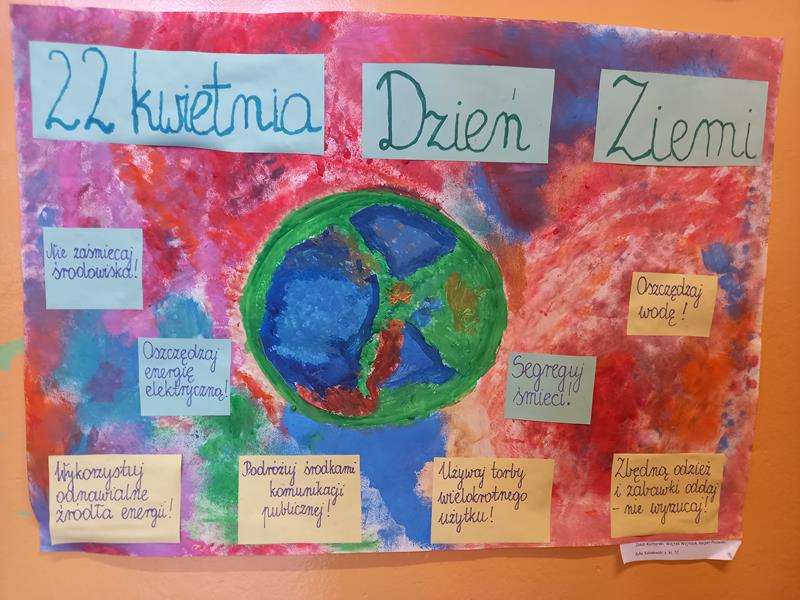 22 kwietnia Dzień Ziemi
Nie zaśmiecaj
środowiska!
Oszczędzaj
wodę!
Oszczędzaj
energię
elektryczną!
Segreguj
śmieci!
Wykorzystuj
odnawialne
źródła energii!
Podróżuj środkami
komunikacji
publicznej!
Używaj torby
wielokrotnego
użytku!
Zbędną odzież
i zabawki oddaj
- nie wyrzucaj!